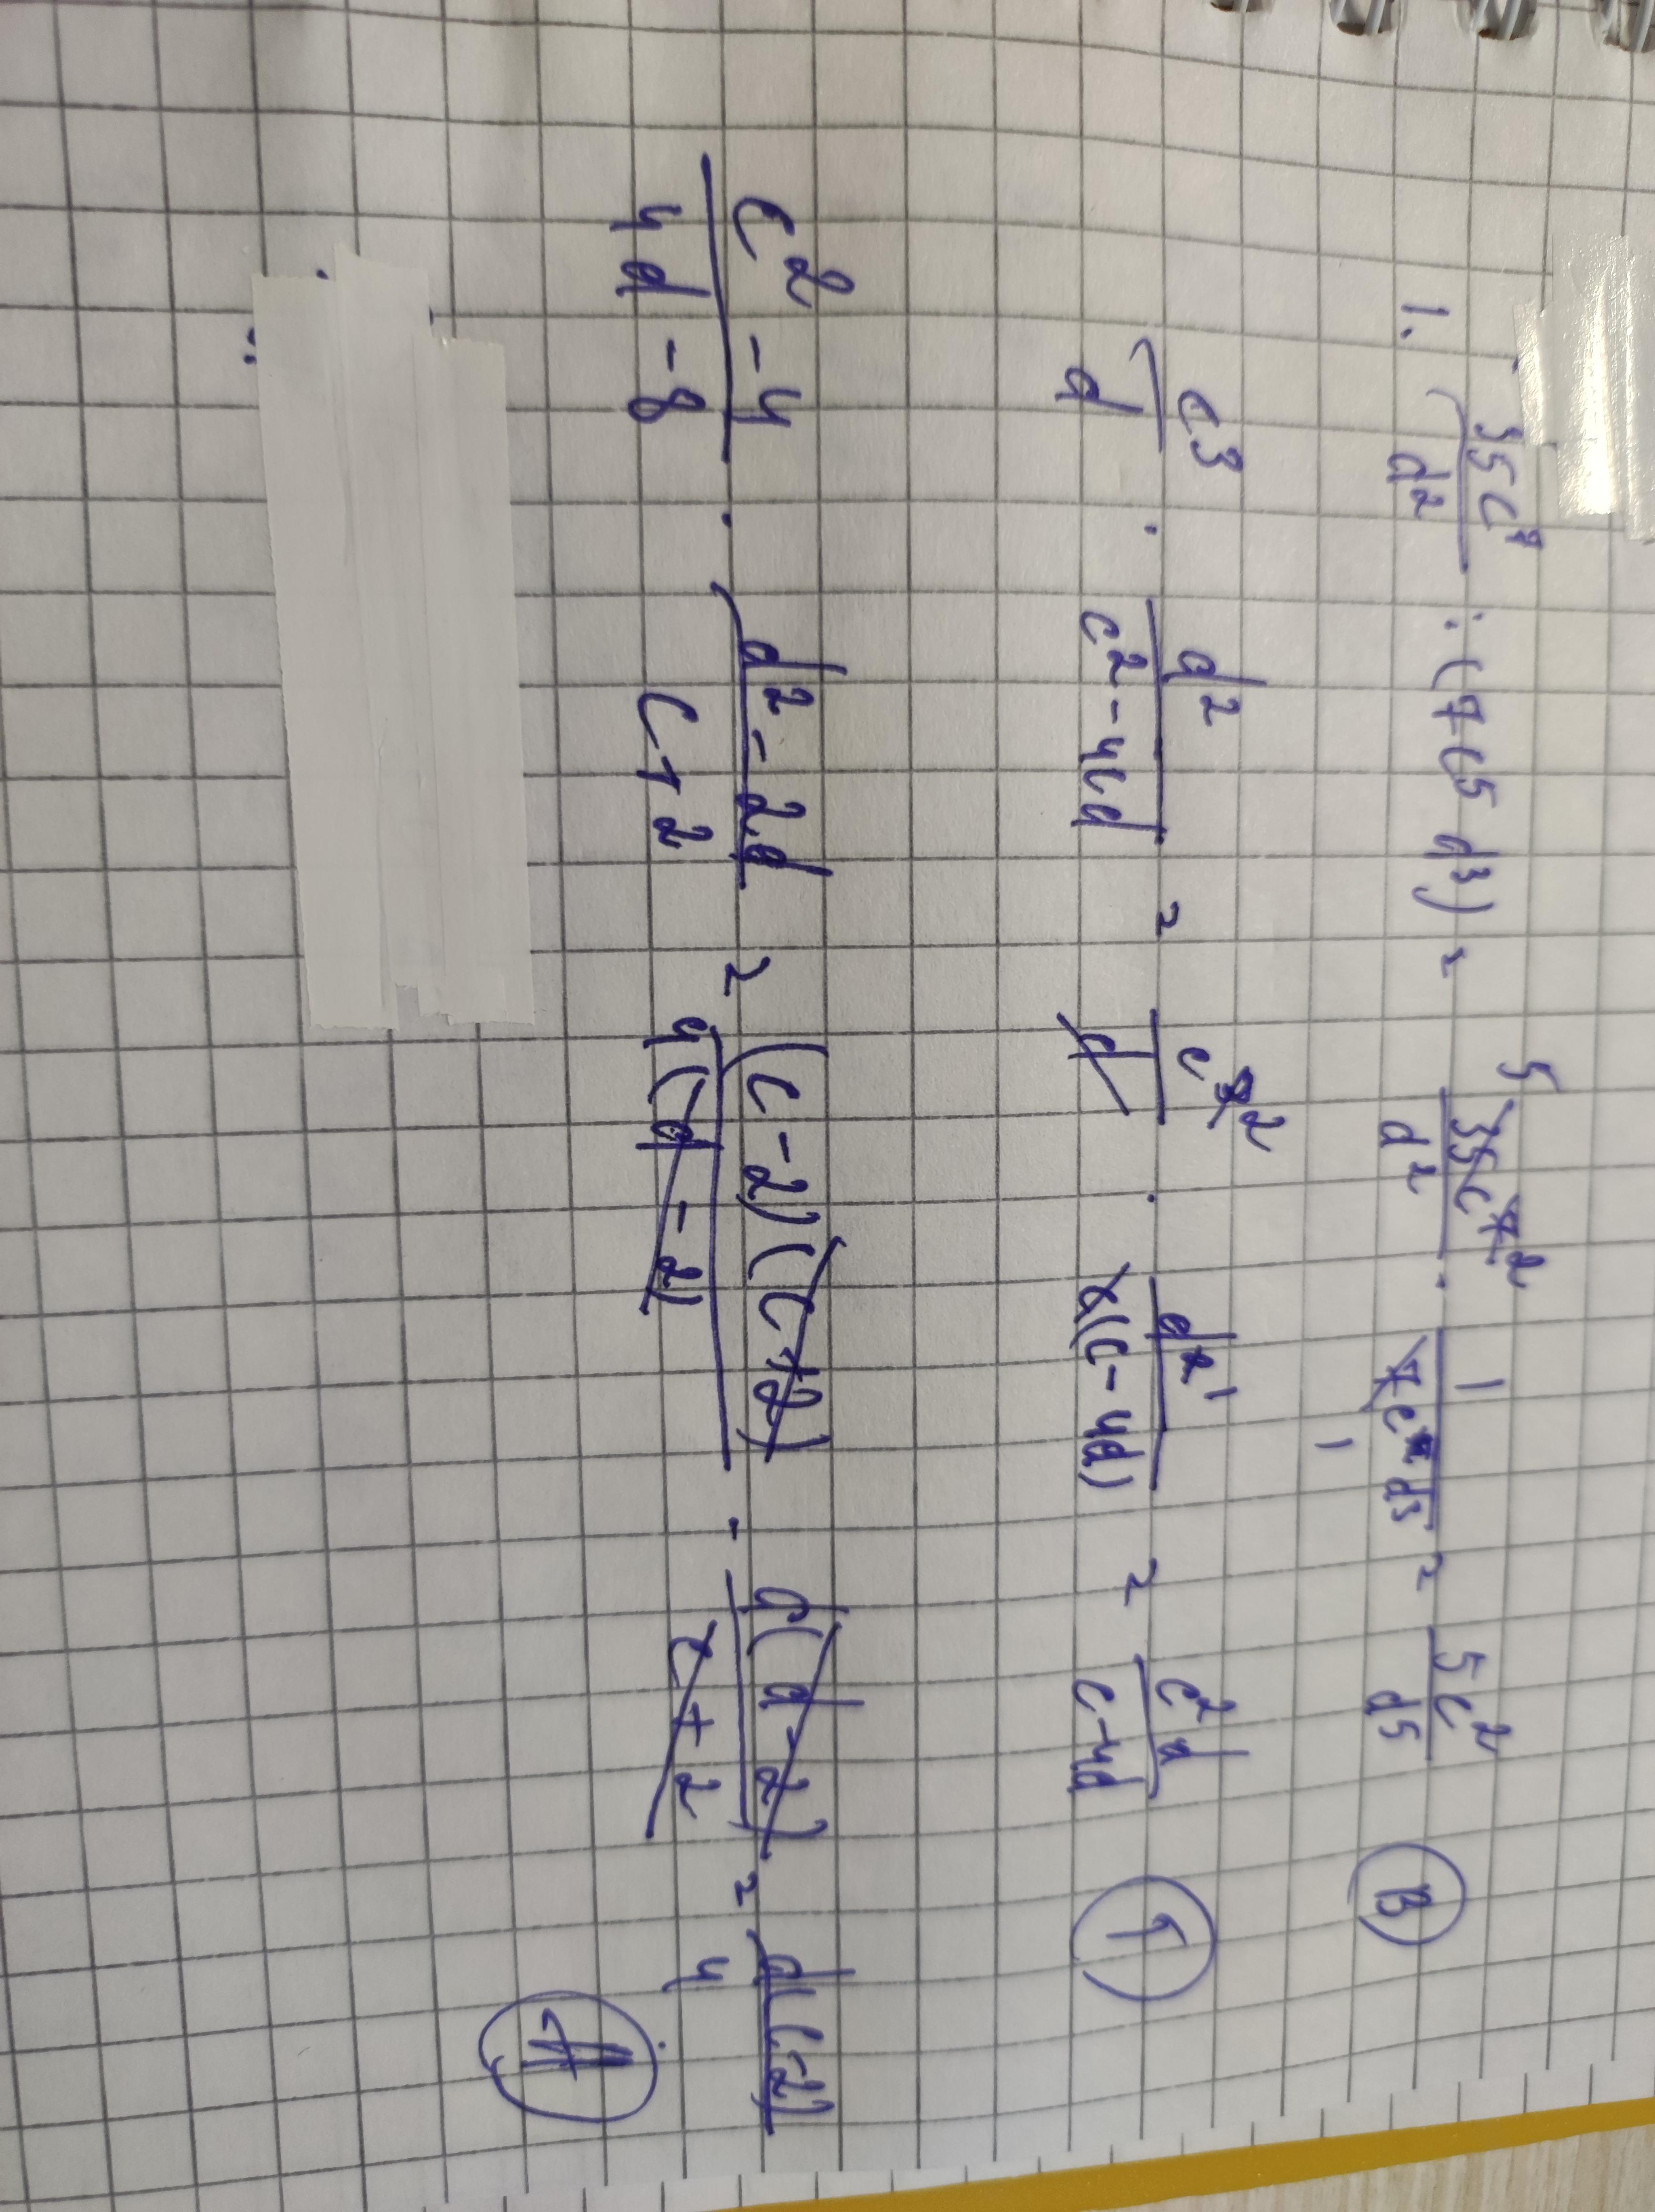 1. 35c⁷/d² : (7c5 d³) = 5 35c⁷ 2/d² · 1/7c⁵d³ 1 = 5c²/d5 B
c3/d · d²/c²-4cd = c3 2/d · d2 1/c(c-4d) = c²d/c-4d Г
c²-4/4d-8 · d²-2d/c+2 = (c-2)(c+2)/4(d-2) · d(d-2)/c+2 = d(c-2)/4 A